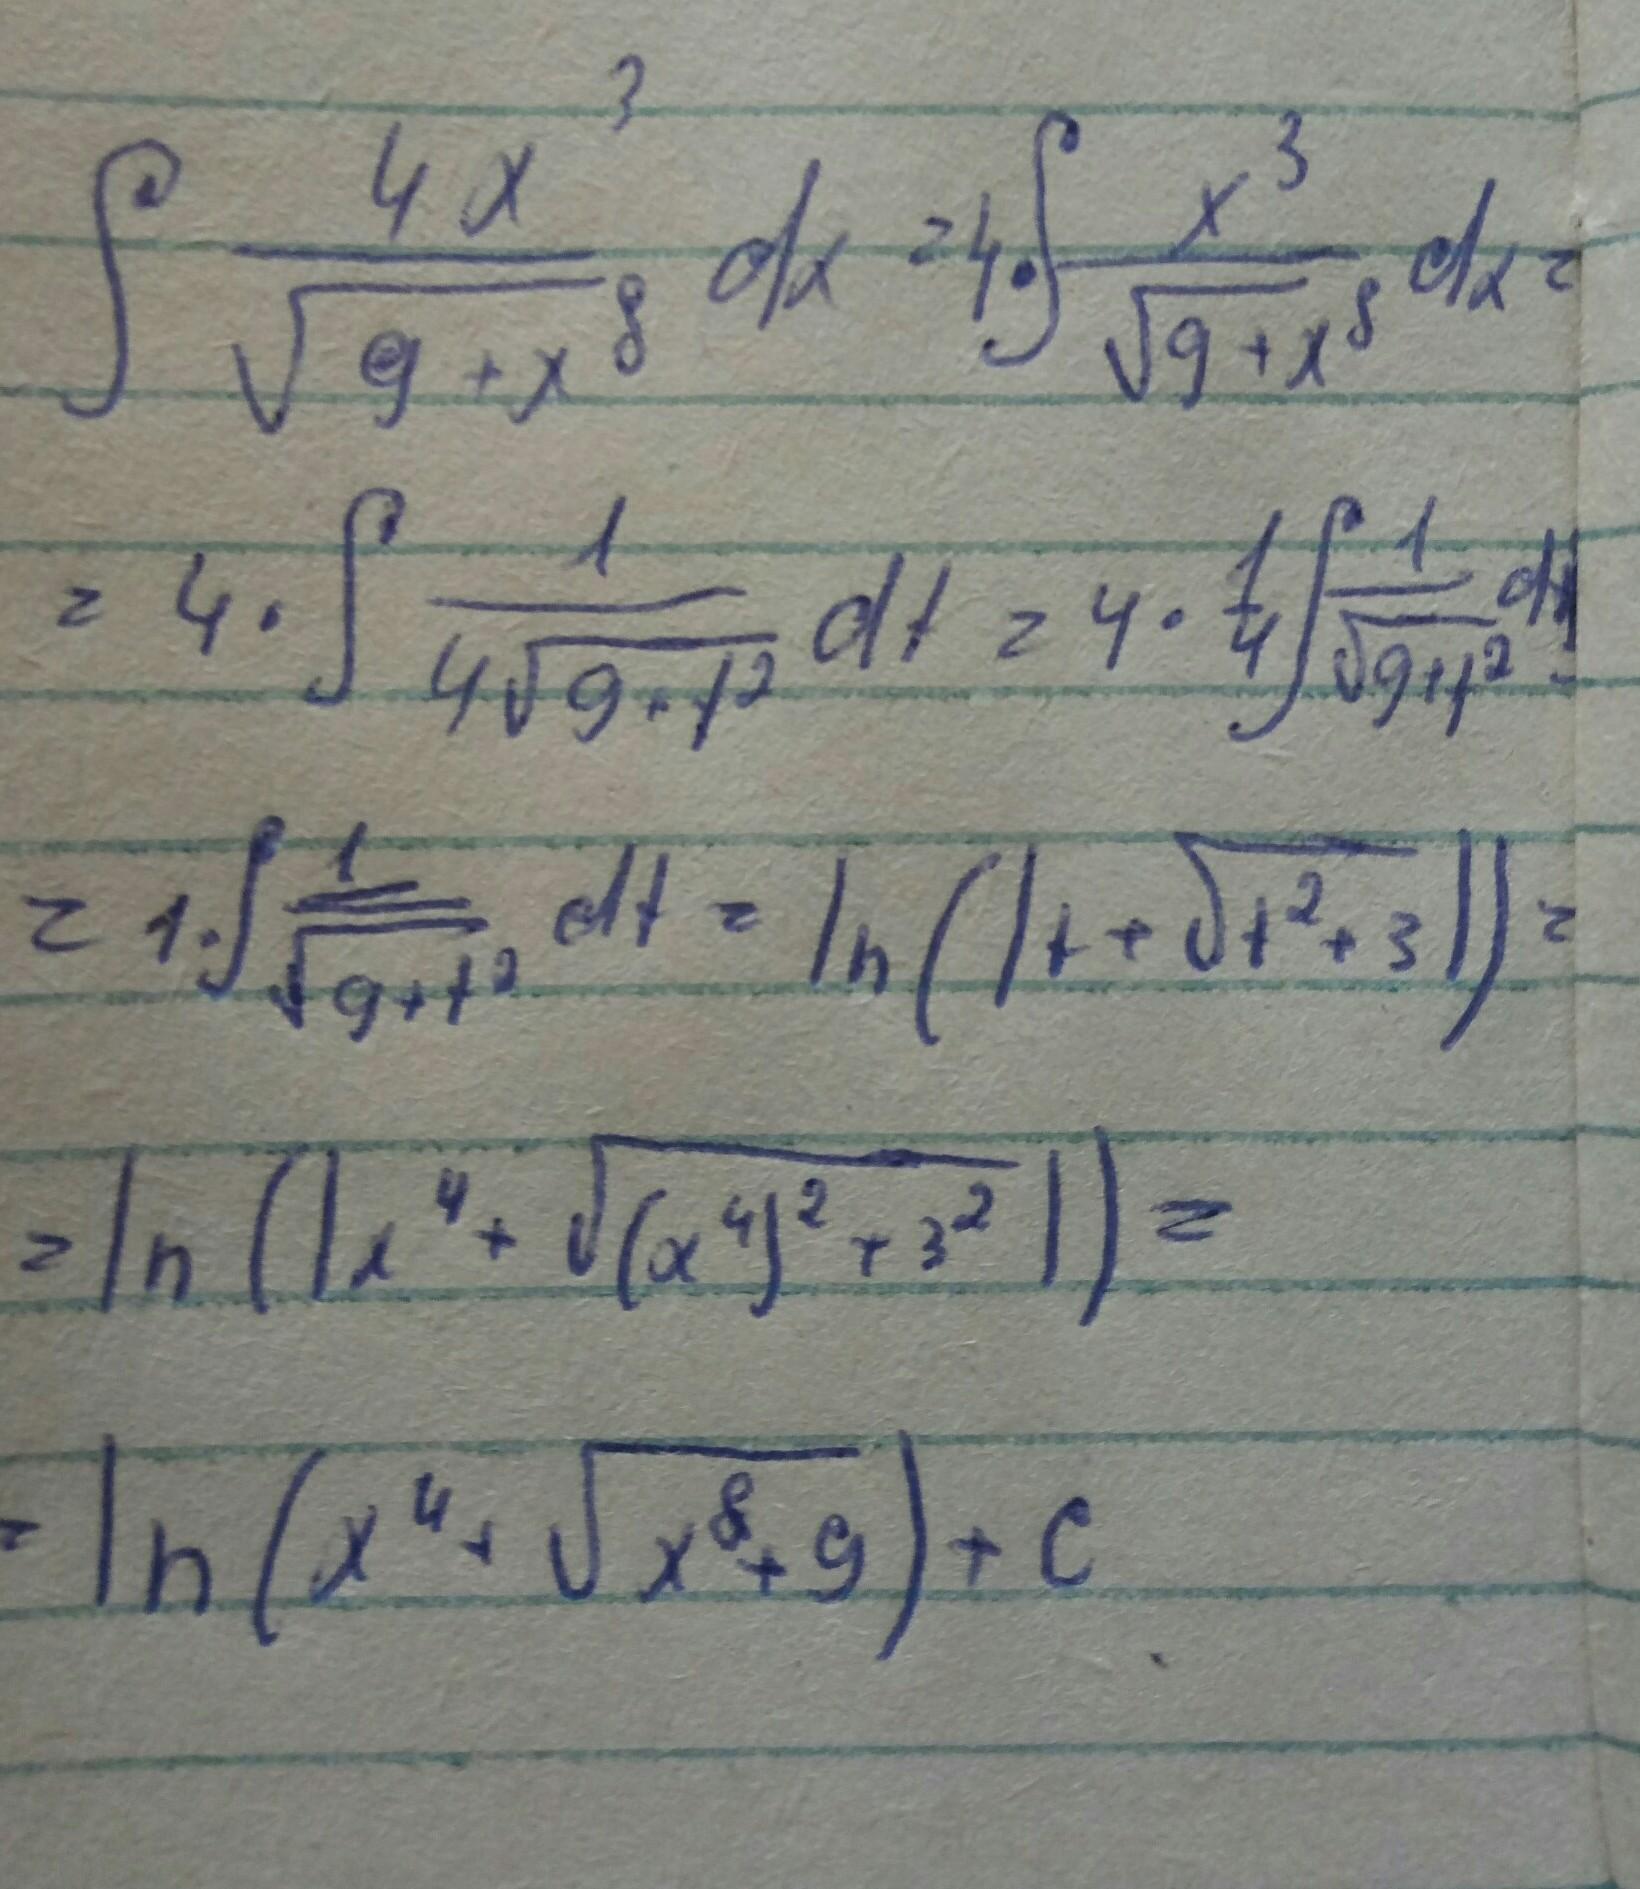 ∫ 4x³/√(9+x⁸) dx = 4·∫ x³/√(9+x⁸) dx =
= 4·∫ 1/(4√(9+t²)) dt = 4·1/4 ∫ 1/√(9+t²) dt =
= 1·∫ 1/√(9+t²) dt = ln(|t+√(t²+3)|) =
= ln(|x⁴+√((x⁴)²+3²)|) =
= ln(x⁴+√(x⁸+9))+C